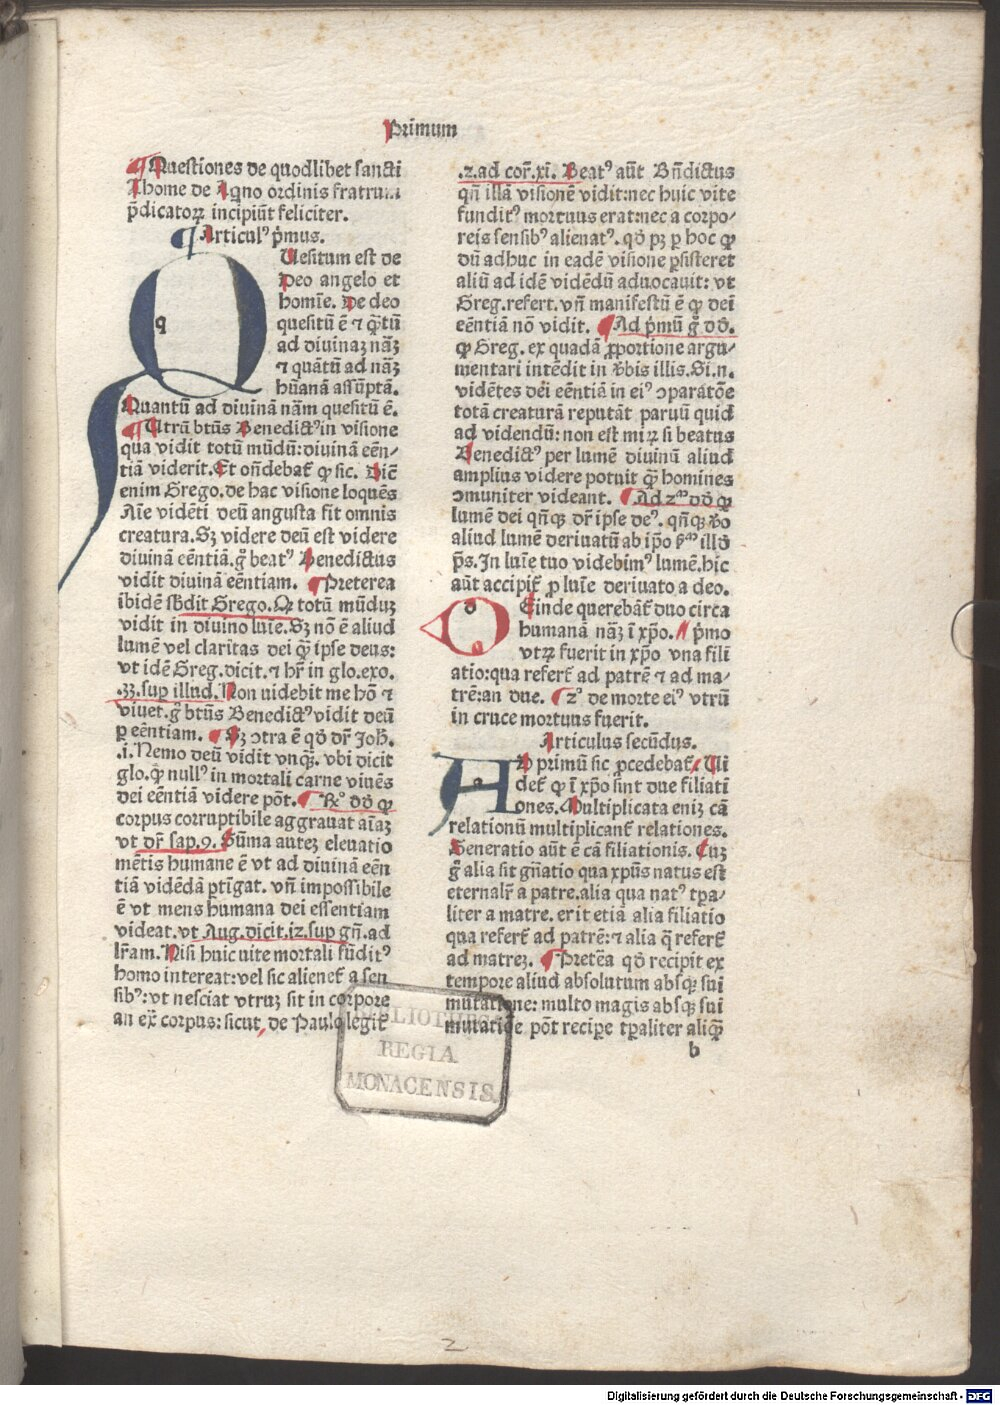 Primum
¶ Questiones de quodlibet sancti
Thome de Aqno ordinis fratrum
p̃dicatoꝝ incipiũt feliciter.
¶ Articulꝰ p̃mus.
QUesitum est de
Deo angelo et
homĩe. De deo
quesitũ ẽ ⁊ q̃tũ
ad diuinaꝫ nãꝫ
⁊ quãtũ ad nãꝫ
hũanã assũptã.
Quantũ ad diuinã nãm quesitũ ẽ.
¶ Utrũ btũs Benedictꝰ in visione
qua vidit totũ mũdũ: diuinã eẽn-
tiã viderit. Et oñdebat̃ ꝙ sic. Dic̃
enim Grego. de hac visione loquẽs
Aĩe vidẽti deũ angusta fit omnis
creatura. Sꝫ videre deũ est videre
diuinã eẽntiã. g̃ beatꝰ Benedictus
vidit diuinã eẽntiam. ¶ Preterea
ibidẽ sb̃dit Grego. Qꝛ totũ mũduꝫ
vidit in diuino luĩe. Sꝫ nõ ẽ aliud
lumẽ vel claritas dei q̃ ipse deus:
vt idẽ Greg. dicit. ⁊ hr̃ in glo. exo.
.33. sup illud. Non uidebit me hõ ⁊
viuet. g̃ btũs Benedictꝰ vidit deũ
ꝑ eẽntiam. ¶ Sꝫ ↄtra ẽ qđ dr̃ Joh̃.
.i. Nemo deũ vidit vnqꝫ. vbi dicit
glo. q̃ nullꝰ in mortali carne viuẽs
dei eẽntiã videre põt. ¶ Rꝰ dđ ꝙ
corpus corruptibile aggrauat aĩaꝫ
vt dr̃ sap. 9. Sũma auteꝫ eleuatio
mẽtis humane ẽ vt ad diuinã eẽn
tiã vidẽdã ꝑtĩgat. vñ impossibile
ẽ vt mens humana dei essentiam
videat. vt Aug. dicit. iz. sup gñ. ad
lr̃am. Nisi huic uite mortali fũditꝰ
homo intereat: vel sic alienet̃ a sen
sibꝰ: vt nesciat vtruꝫ sit in corpore
an ex̃ corpus: sicut de Paulo legit̃
.z. ad cor̃. xi. Beatꝰ aũt Bñdictus
qñ illã visionẽ vidit: nec huic vite
funditꝰ mortuus erat: nec a corpo-
reis sensibꝰ alienatꝰ. qđ pꝫ ꝑ hoc ꝙ
dũ adhuc in eadẽ visione ꝑsisteret
aliũ ad idẽ vidẽdũ aduocauit: vt
Greg. refert. vñ manifestũ ẽ ꝙ dei
eẽntiã nõ vidit. ¶ Ad p̃mũ g̃ dđ.
ꝙ Greg. ex quadã ꝓportione argu-
mentari intẽdit in v̾bis illis. Si. n.
vidẽtes dei eẽntiã in eiꝰ ↄparatõe
totã creaturã reputãt paruũ quid
ad videndũ: non est miꝝ si beatus
Benedictꝰ per lumẽ diuinũ aliud
amplius videre potuit q̃ homines
ↄmuniter videant. ¶ Ad zᵐ dđ ꝙ
lumẽ dei qñqꝫ dr̃ ipse deꝰ. qñqꝫ v̾o
aliud lumẽ deriuatũ ab ip̃o ẜᵐ illđ
p̃s. In luĩe tuo videbimꝰ lumẽ. hic
aũt accipit̃ ꝓ luĩe deriuato a deo.
DEinde querebãt̃ duo circa
humanã nãꝫ ĩ xp̃o. ¶ p̃mo
vtꝝ fuerit in xp̃o vna fili
atio: qua refert̃ ad patrẽ ⁊ ad ma-
trẽ: an due. ¶ zꝰ de morte eiꝰ vtrũ
in cruce mortuus fuerit.
Articulus secũdus.
AD primũ sic ꝓcedebat̃. Ui
det̃ ꝙ ĩ xp̃o sint due filiati
ones. Multiplicata eniꝫ cã
relationũ multiplicant̃ relationes.
Generatio aũt ẽ cã filiationis. Cuꝫ
g̃ alia sit gñatio qua xp̃us natus est
eternalr̃ a patre. alia qua natꝰ tp̃a-
liter a matre. erit etiã alia filiatio
qua refert̃ ad patrẽ: ⁊ alia q̃ refert̃
ad matreꝫ. ¶ Pretẽa qđ recipit ex
tempore aliud absolutum absqꝫ sui
mutatione: multo magis absqꝫ sui
mutatiõe põt recipe tp̃aliter aliqđ
b
BIBLIOTHECA
REGIA
MONACENSIS.
2
Digitalisierung gefördert durch die Deutsche Forschungsgemeinschaft - DFG